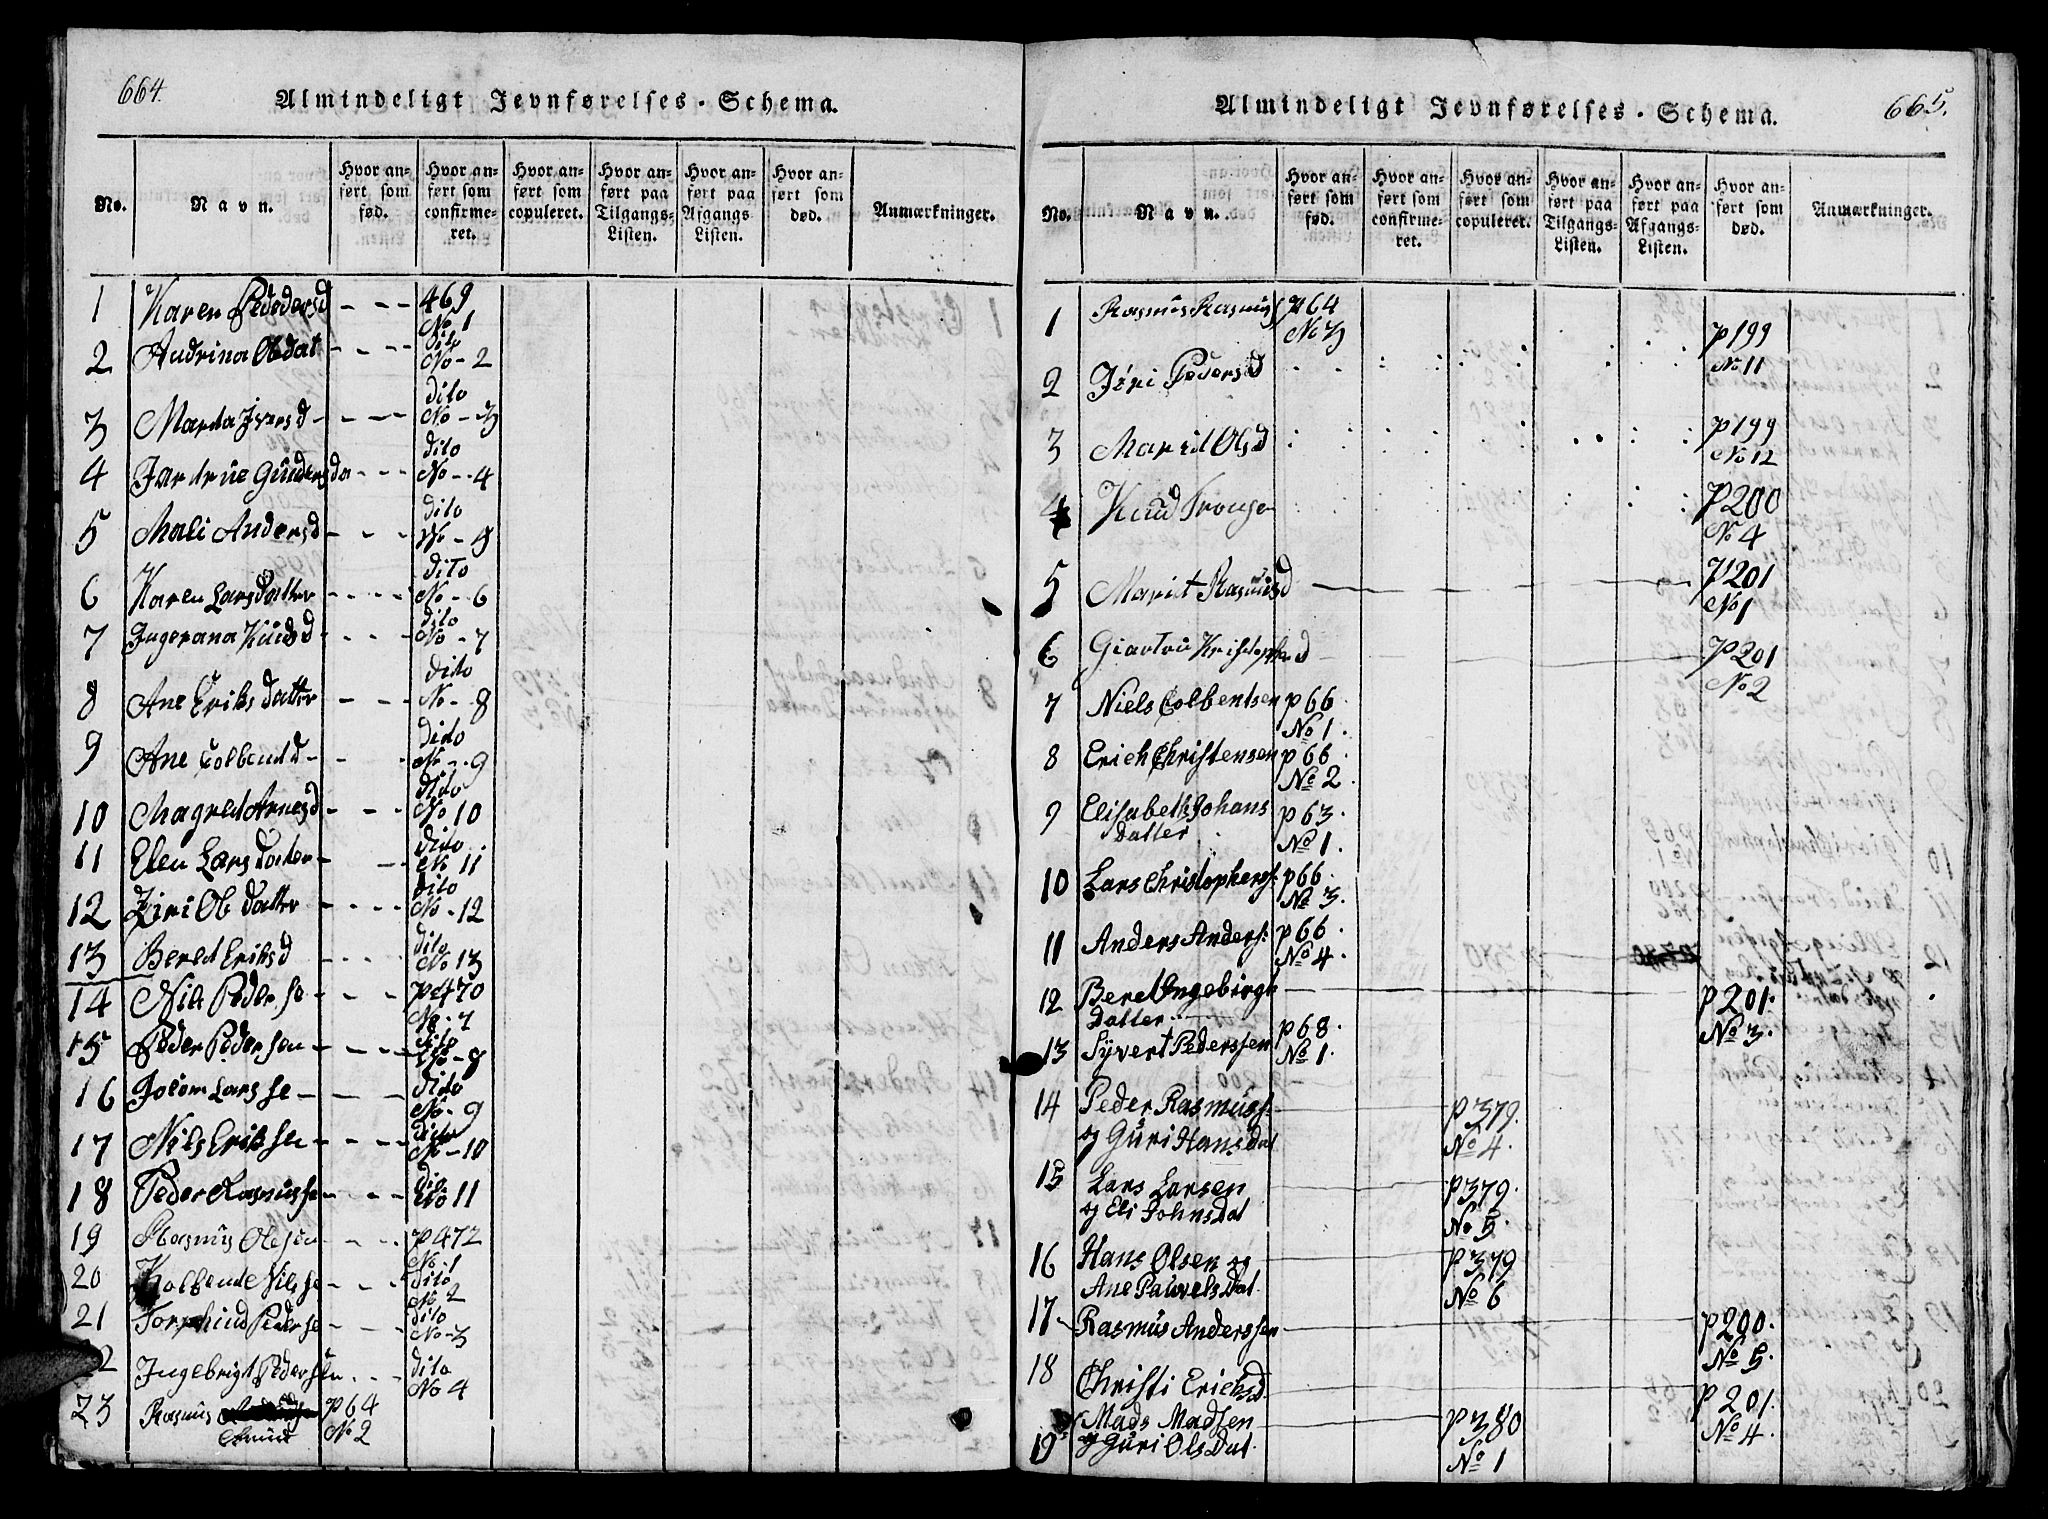 664.
Almindeligt Jevnførelses-Schema.
No.
Navn.
Hvor anført som fød.
Hvor anført som confirmeret.
Hvor anført som copuleret.
Hvor anført paa Tilgangs-Listen.
Hvor anført paa Afgangs-Listen.
Hvor anført som død.
Anmærkninger.
1 Karen Pedersd - - - 469 No 1
2 Andrina Olsdat - - - Dito No - 2
3 Marta Iversd - - - dito No - 3
4 Jardrue Gundersda - - - dito No - 4
5 Mali Andersd - - - dito No - 5
6 Karen Larsdatter - - - dito No - 6
7 Ingerana Knudsd - - - dito No - 7
8 Ane Eriksdatter - - - dito No - 8
9 Ane Colbend d - - - dito No - 9
10 Magred Arnesd - - - dito No 10
11 Elen Larsdater - - - dito No 11
12 Ziri Olsdatter - - - dito No - 12
13 Bered Eriksd - - - dito No 13
14 Nils Pederse - - - p 470 No - 7
15 Peder Pedersen - - - dito No - 8
16 Joiom Larsse - - - dito No - 9
17 Nils Eriksen - - - dito No - 10
18 Peder Rasmusse - - - dito No 11
19 Rasmus Olesen - - - p 472 No - 1
20 Kolbent Nilsse - - - dito No 2
21 Torphind Pederse - - - dito No - 3
22 Ingebrigt Pedersen - - - dito No 4
23 Rasmus Knud p 64 No 2
665.
Almindeligt Jevnførelses-Schema.
No.
Navn.
Hvor anført som fød.
Hvor anført som confirmeret.
Hvor anført som copuleret.
Hvor anført paa Tilgangs-Listen.
Hvor anført paa Afgangs-Listen.
Hvor anført som død.
Anmærkninger.
1 Rasmus Rasmus p 64 No 3
2 Jøri Pedersd p 199 No 11
3 Marid Olsd p 199 No 12
4 Knud Tronse p 200 No 4
5 Marit Rasmusd p 201 No 1
6 Giartru Kristophersd p 201 No 2
7 Niels Colbentsen p 66. No 1.
8 Erich Christensen p 66 No 2.
9 Elisabeth Johans Datter p 63. No 1.
10 Lars Christophers. p 66. No 3.
11 Anders Anders: p 66. No 4.
12 Beret Ingebrigt Datter p 201. No 3.
13 Syvert Pederssen p 68. No 1.
14 Peder Rasmuss: og Guri Hansdat p 379. No 4.
15 Lars Larsen og Eli Johnsdat p 379. No 5.
16 Hans Olsen og Ane Pauvelsdat. p 379 No 6
17 Rasmus Anderssen p 200. No 5.
18 Christi Erichsd. p 201. No 4.
19 Mads Madsen og Guri Olsdat. p 380 No 1